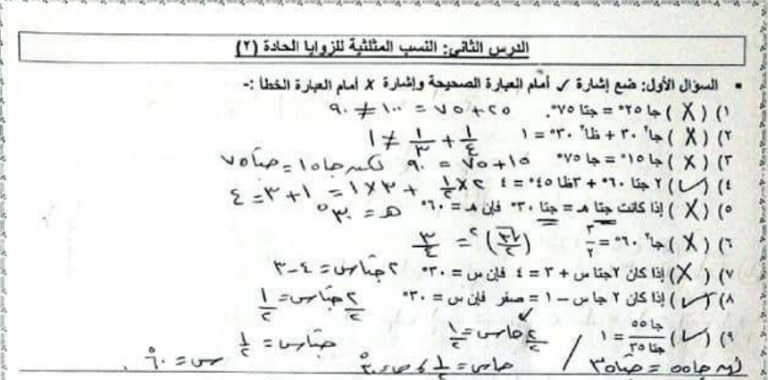 الدرس الثاني: النسب المثلثية للزوايا الحادة (٢)
▪ السؤال الأول: ضع إشارة ✓ أمام العبارة الصحيحة وإشارة ✗ أمام العبارة الخطأ :-
١) (X) جا ٢٥° = جتا ٧٥°. ٢٥ + ٧٥ = ١٠٠ ≠ ٩٠
٢) (X) جا² ٣٠ + ظا² ٣٠° = ١ ١/٤ + ١/٣ ≠ ١
٣) (X) جا ١٥° = جا ٧٥° ١٥ + ٧٥ = ٩٠ لكن جا١٥ = جتا ٧٥
٤) (✓) ٢ جتا ٦٠° + ٣ظا ٤٥° = ٤ ٢×١/٢ + ٣×١ = ١+٣ = ٤
٥) (X) إذا كانت جتا هـ = جتا ٣٠° فإن هـ = ٦٠° هـ = ٣٠°
٦) (X) جا² ٦٠° = ٣/٢ (√٣/٢)² = ٣/٤
٧) (X) إذا كان ٢جتا س + ٣ = ٤ فإن س = ٣٠° ٢ جتاس = ٤-٣
٨) (✓) إذا كان ٢ جا س – ١ = صفر فإن س = ٣٠° ٢/٢ جتاس = ١/٢
٩) (✓) جا ٥٥ / جتا ٣٥ = ١ ٢/٢ جاس = ١/٢ جتاس = ١/٢
جا ٥٥ = جتا ٣٥ جاس = ١/٢ س = ٦٠°